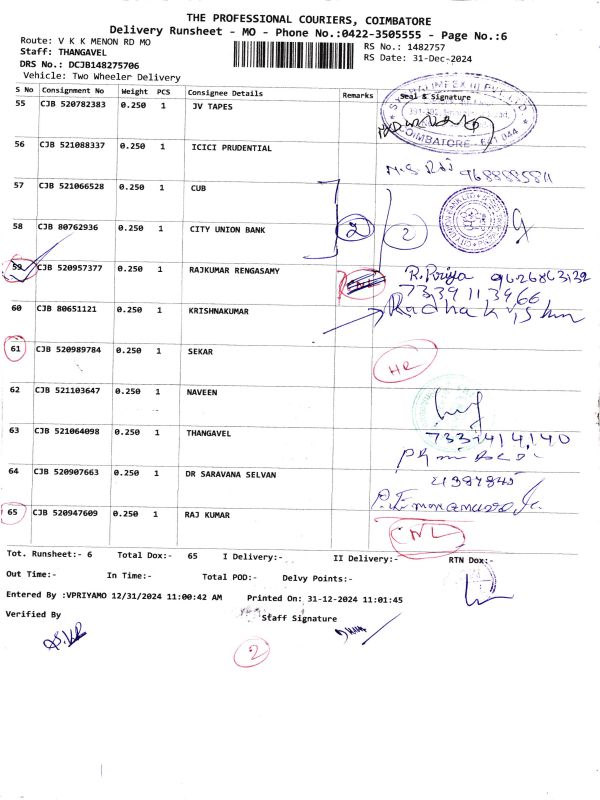 THE PROFESSIONAL COURIERS, COIMBATORE
Delivery Runsheet - MO - Phone No.:0422-3505555 - Page No.:6
Route: V K K MENON RD MO
RS No.: 1482757
Staff: THANGAVEL
RS Date: 31-Dec-2024
DRS No.: DCJB148275706
Vehicle: Two Wheeler Delivery
S No Consignment No Weight PCS Consignee Details Remarks Seal & Signature
55 CJB 520782383 0.250 1 JV TAPES
COIMBATORE
56 CJB 521088337 0.250 1 ICICI PRUDENTIAL
57 CJB 521066528 0.250 1 CUB
58 CJB 80762936 0.250 1 CITY UNION BANK 2 2
59 CJB 520957377 0.250 1 RAJKUMAR RENGASAMY R. Priya 9626863132
7339113966
60 CJB 80651121 0.250 1 KRISHNAKUMAR Radhakrishnn
61 CJB 520989784 0.250 1 SEKAR
62 CJB 521103647 0.250 1 NAVEEN
63 CJB 521064098 0.250 1 THANGAVEL
64 CJB 520907663 0.250 1 DR SARAVANA SELVAN
65 CJB 520947609 0.250 1 RAJ KUMAR NL
Tot. Runsheet:- 6 Total Dox:- 65 I Delivery:- II Delivery:- RTN Dox:-
Out Time:- In Time:- Total POD:- Delvy Points:-
Entered By :VPRIYAMO 12/31/2024 11:00:42 AM Printed On: 31-12-2024 11:01:45
Verified By Staff Signature
2